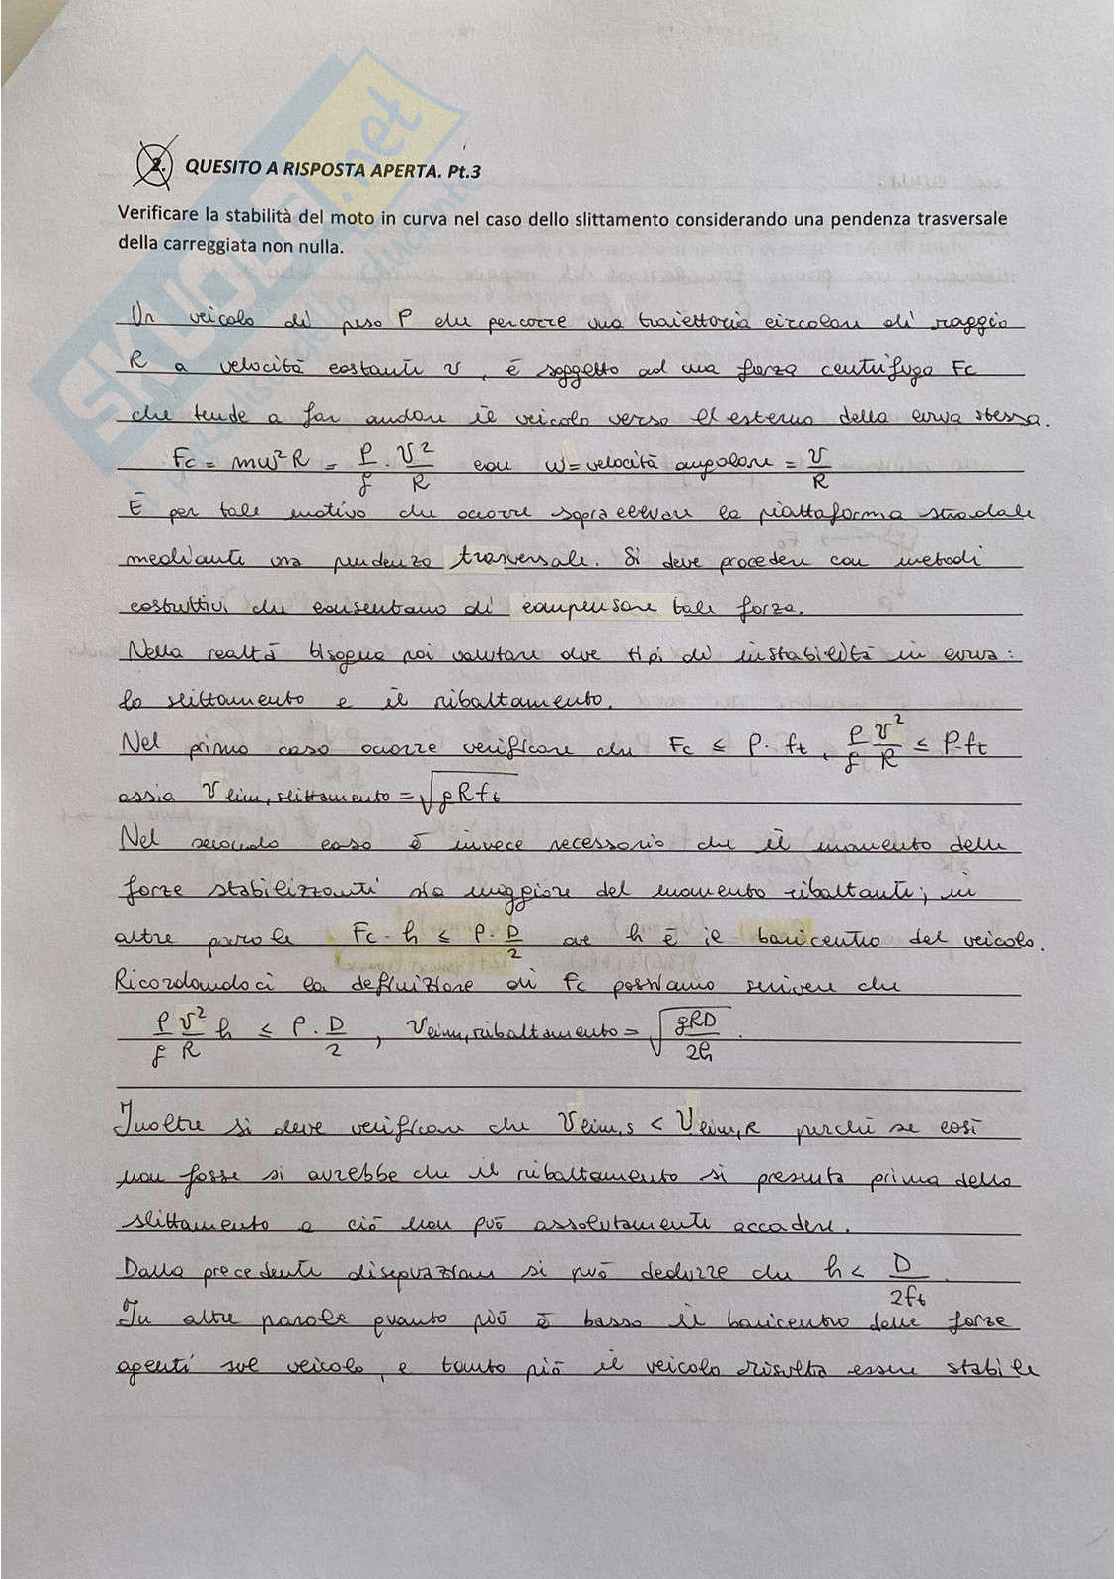 SKUOLA.net
2. QUESITO A RISPOSTA APERTA. Pt.3
Verificare la stabilità del moto in curva nel caso dello slittamento considerando una pendenza trasversale
della carreggiata non nulla.
Un veicolo di peso P che percorre una traiettoria circolare di raggio
R a velocità costante v, è soggetto ad una forza centrifuga Fc
che tende a far andare il veicolo verso l'esterno della curva stessa.
Fc = mω²R = P/g · V²/R con ω = velocità angolare = v/R
È per tale motivo che occorre sopraelevare la piattaforma stradale
mediante una pendenza trasversale. Si deve procedere con metodi
costruttivi che consentano di compensare tale forza.
Nella realtà bisogna poi valutare due tipi di instabilità in curva:
lo slittamento e il ribaltamento.
Nel primo caso occorre verificare che Fc ≤ P · ft, P/g V²/R ≤ P·ft
ossia Vlim, slittamento = √gRft
Nel secondo caso è invece necessario che il momento delle
forze stabilizzanti sia maggiore del momento ribaltante; in
altre parole Fc · h ≤ P · D/2 ove h è il baricentro del veicolo.
Ricordandoci la definizione di Fc possiamo scrivere che
P/g V²/R h ≤ P · D/2, Vlim, ribaltamento = √gRD/2h.
Inoltre si deve verificare che Vlim,s < Vlim,R perché se così
non fosse si avrebbe che il ribaltamento si presenta prima dello
slittamento e ciò non può assolutamente accadere.
Dalla precedente disequazione si può dedurre che h < D/2ft.
In altre parole quanto più è basso il baricentro delle forze
agenti sul veicolo, e tanto più il veicolo risulta essere stabile